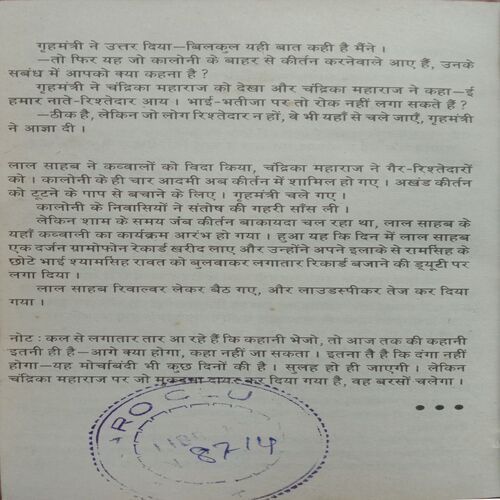 गृहमंत्री ने उत्तर दिया—बिलकुल यही बात कही है मैंने ।
—तो फिर यह जो कालोनी के बाहर से कीर्तन करनेवाले आए हैं, उनके
सबंध में आपको क्या कहना है ?
गृहमंत्री ने चंद्रिका महाराज को देखा और चंद्रिका महाराज ने कहा—ई
हमार नाते-रिश्तेदार आय । भाई-भतीजा पर तो रोक नहीं लगा सकते हैं ?
—ठीक है, लेकिन जो लोग रिश्तेदार न हों, वे भी यहाँ से चले जाएँ, गृहमंत्री
ने आज्ञा दी ।
लाल साहब ने कव्वालों को विदा किया, चंद्रिका महाराज ने गैर-रिश्तेदारों
को । कालोनी के ही चार आदमी अब कीर्तन में शामिल हो गए । अखंड कीर्तन
को टूटने के पाप से बचाने के लिए । गृहमंत्री चले गए ।
कालोनी के निवासियों ने संतोष की गहरी साँस ली ।
लेकिन शाम के समय जब कीर्तन बाकायदा चल रहा था, लाल साहब के
यहाँ कव्वाली का कार्यक्रम आरंभ हो गया । हुआ यह कि दिन में लाल साहब
एक दर्जन ग्रामोफोन रेकार्ड खरीद लाए और उन्होंने अपने इलाके से रामसिंह के
छोटे भाई श्यामसिंह रावत को बुलवाकर लगातार रिकार्ड बजाने की ड्यूटी पर
लगा दिया ।
लाल साहब रिवाल्वर लेकर बैठ गए, और लाउडस्पीकर तेज कर दिया
गया ।
नोट : कल से लगातार तार आ रहे हैं कि कहानी भेजो, तो आज तक की कहानी
इतनी ही है—आगे क्या होगा, कहा नहीं जा सकता । इतना तै है कि दंगा नहीं
होगा—यह मोर्चाबंदी भी कुछ दिनों की है । सुलह हो ही जाएगी । लेकिन
चंद्रिका महाराज पर जो मुकदमा दायर कर दिया गया है, वह बरसों चलेगा ।
8714